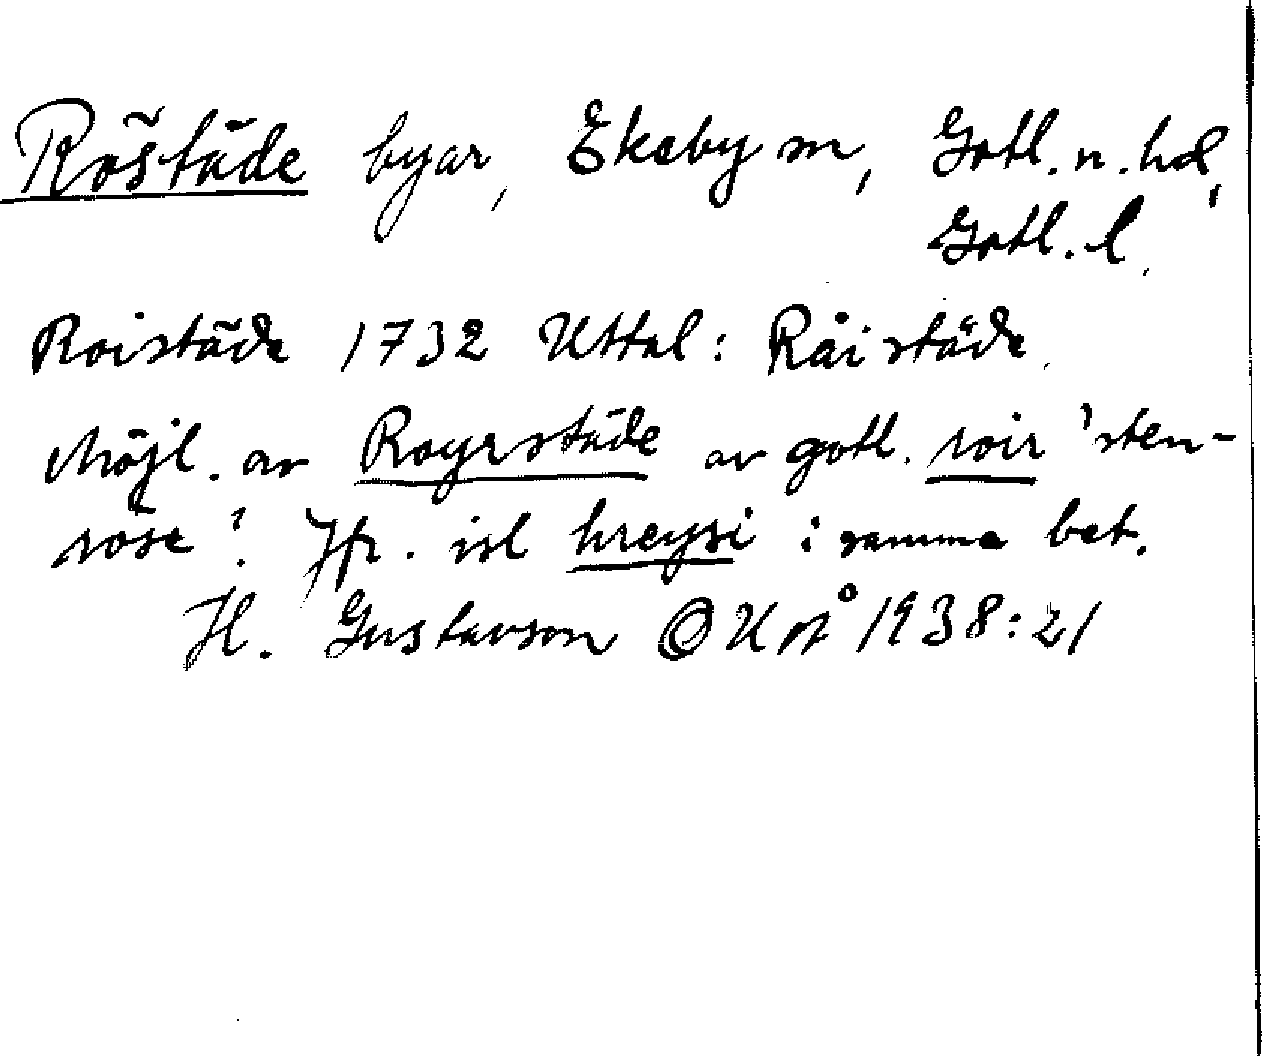 Röstäde byar, Ekeby sn, Gotl. n. hd,
Gotl. l.
Roistäde 1732 Uttal: Råistäde.
Möjl. av Royrstäde av gotl. roir 'sten-
röse'. Jfr. isl hreysi i samma bet.
H. Gustavson OUÅ 1938:21